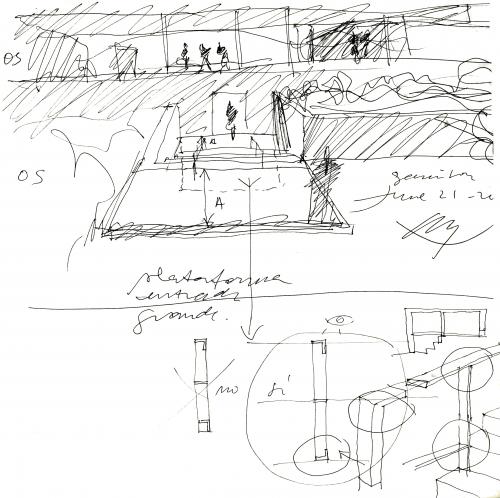 OS
A
OS
June 21-20
plataforma
entrada
grande.
no
sí